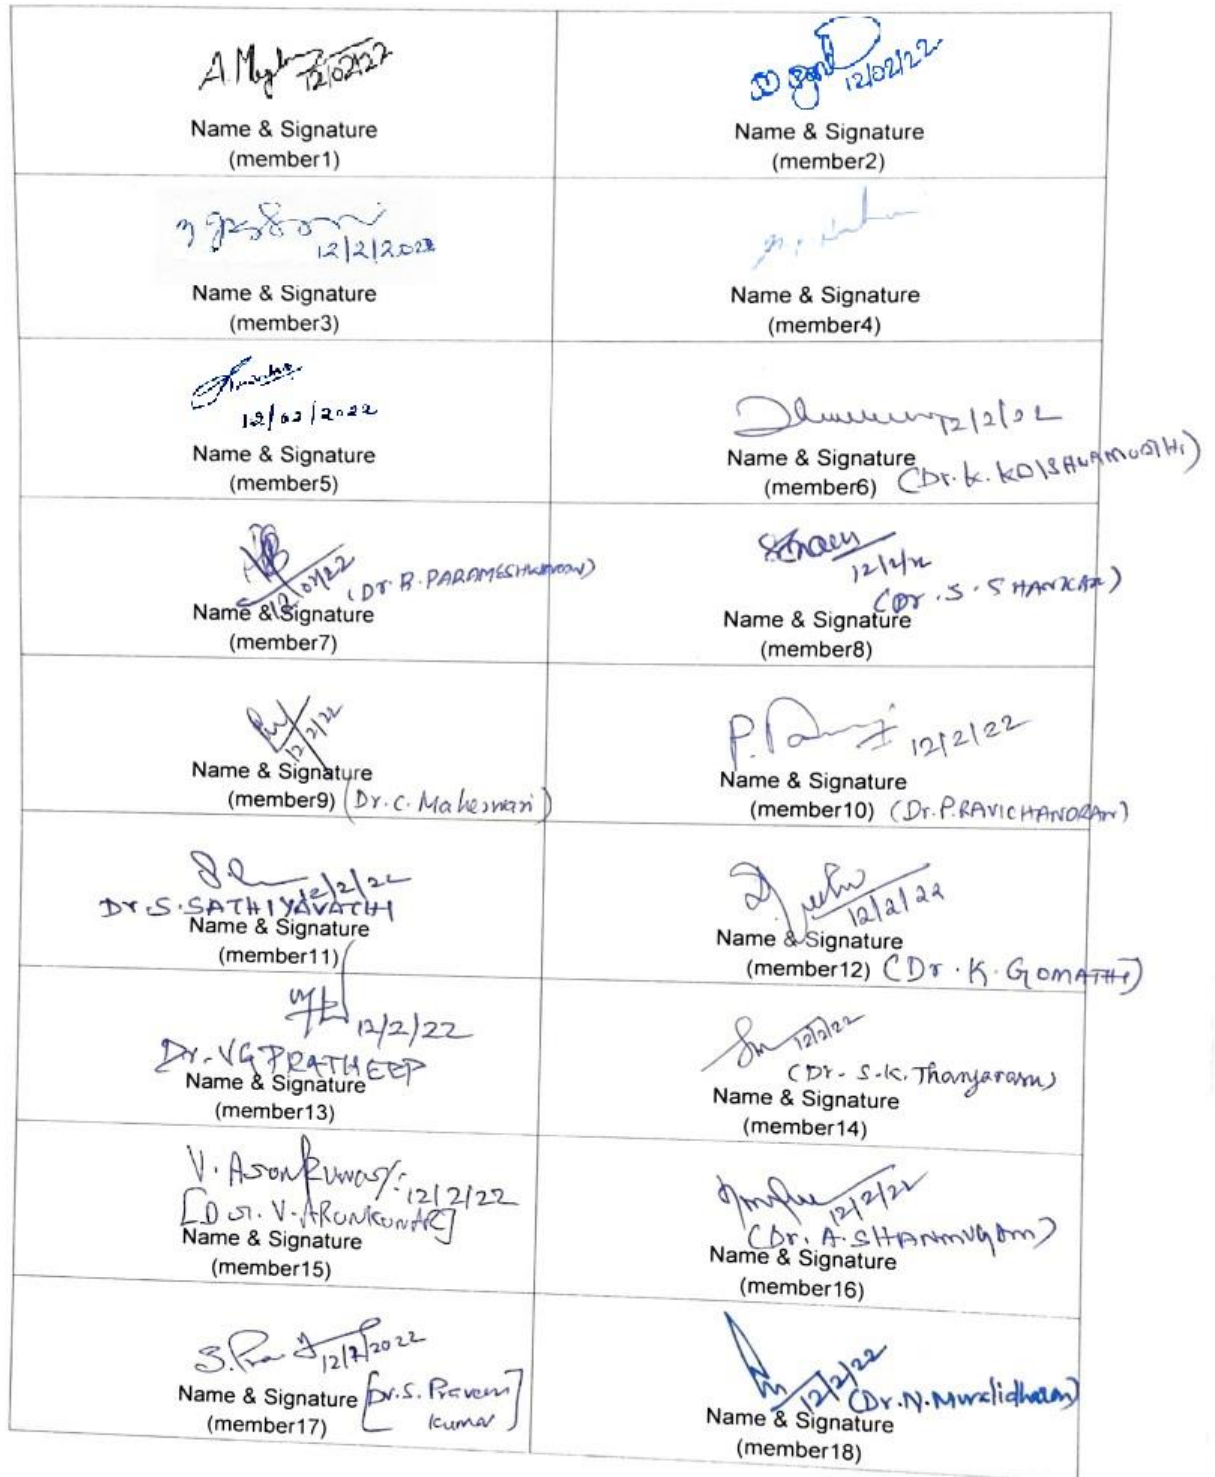 12/02/22
Name & Signature
(member1)
12/02/22
Name & Signature
(member2)
12/2/2022
Name & Signature
(member3)
Name & Signature
(member4)
12/02/2022
Name & Signature
(member5)
12/2/22
Name & Signature
(member6) (Dr. K. KRISHNAMURTHI)
12/02/22 (Dr. B. PARAMESHWARAN)
Name & Signature
(member7)
12/2/22
(Dr. S. SHANKAR)
Name & Signature
(member8)
12/2/22
Name & Signature
(member9) (Dr. C. Maheswari)
12/2/22
Name & Signature
(member10) (Dr. P. RAVICHANDRAN)
12/2/22
Dr. S. SATHIYAVATHI
Name & Signature
(member11)
12/2/22
Name & Signature
(member12) (Dr. K. GOMATHI)
12/2/22
Dr. VG PRATHEEP
Name & Signature
(member13)
12/2/22
(Dr. S.K. Thangarasu)
Name & Signature
(member14)
V. Arunkumar 12/2/22
[Dr. V. ARUNKUMAR]
Name & Signature
(member15)
12/2/22
(Dr. A. SHANMUGAM)
Name & Signature
(member16)
12/2/2022
Name & Signature [Dr. S. Praveen
(member17) Kumar]
12/2/22
(Dr. N. Muralidharan)
Name & Signature
(member18)